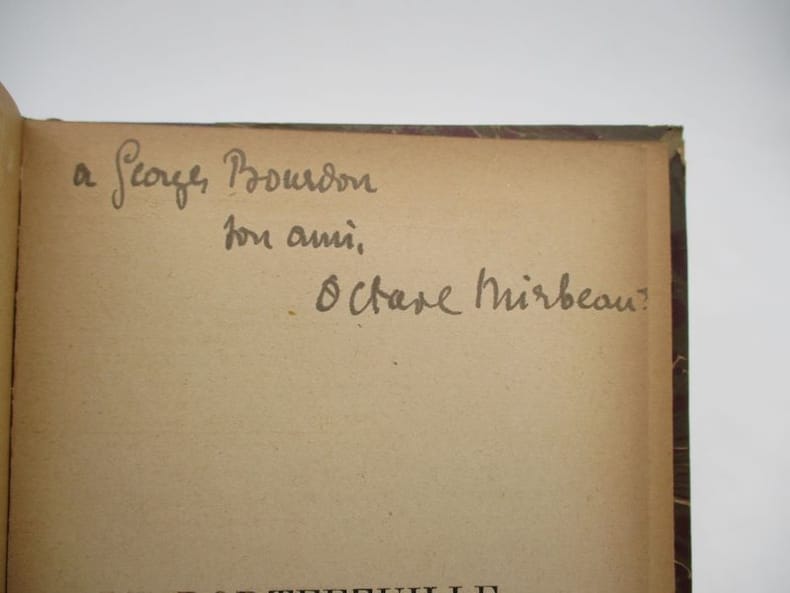 a Georges Bourdon
son ami,
Octave Mirbeau
PORTEFEUILLE